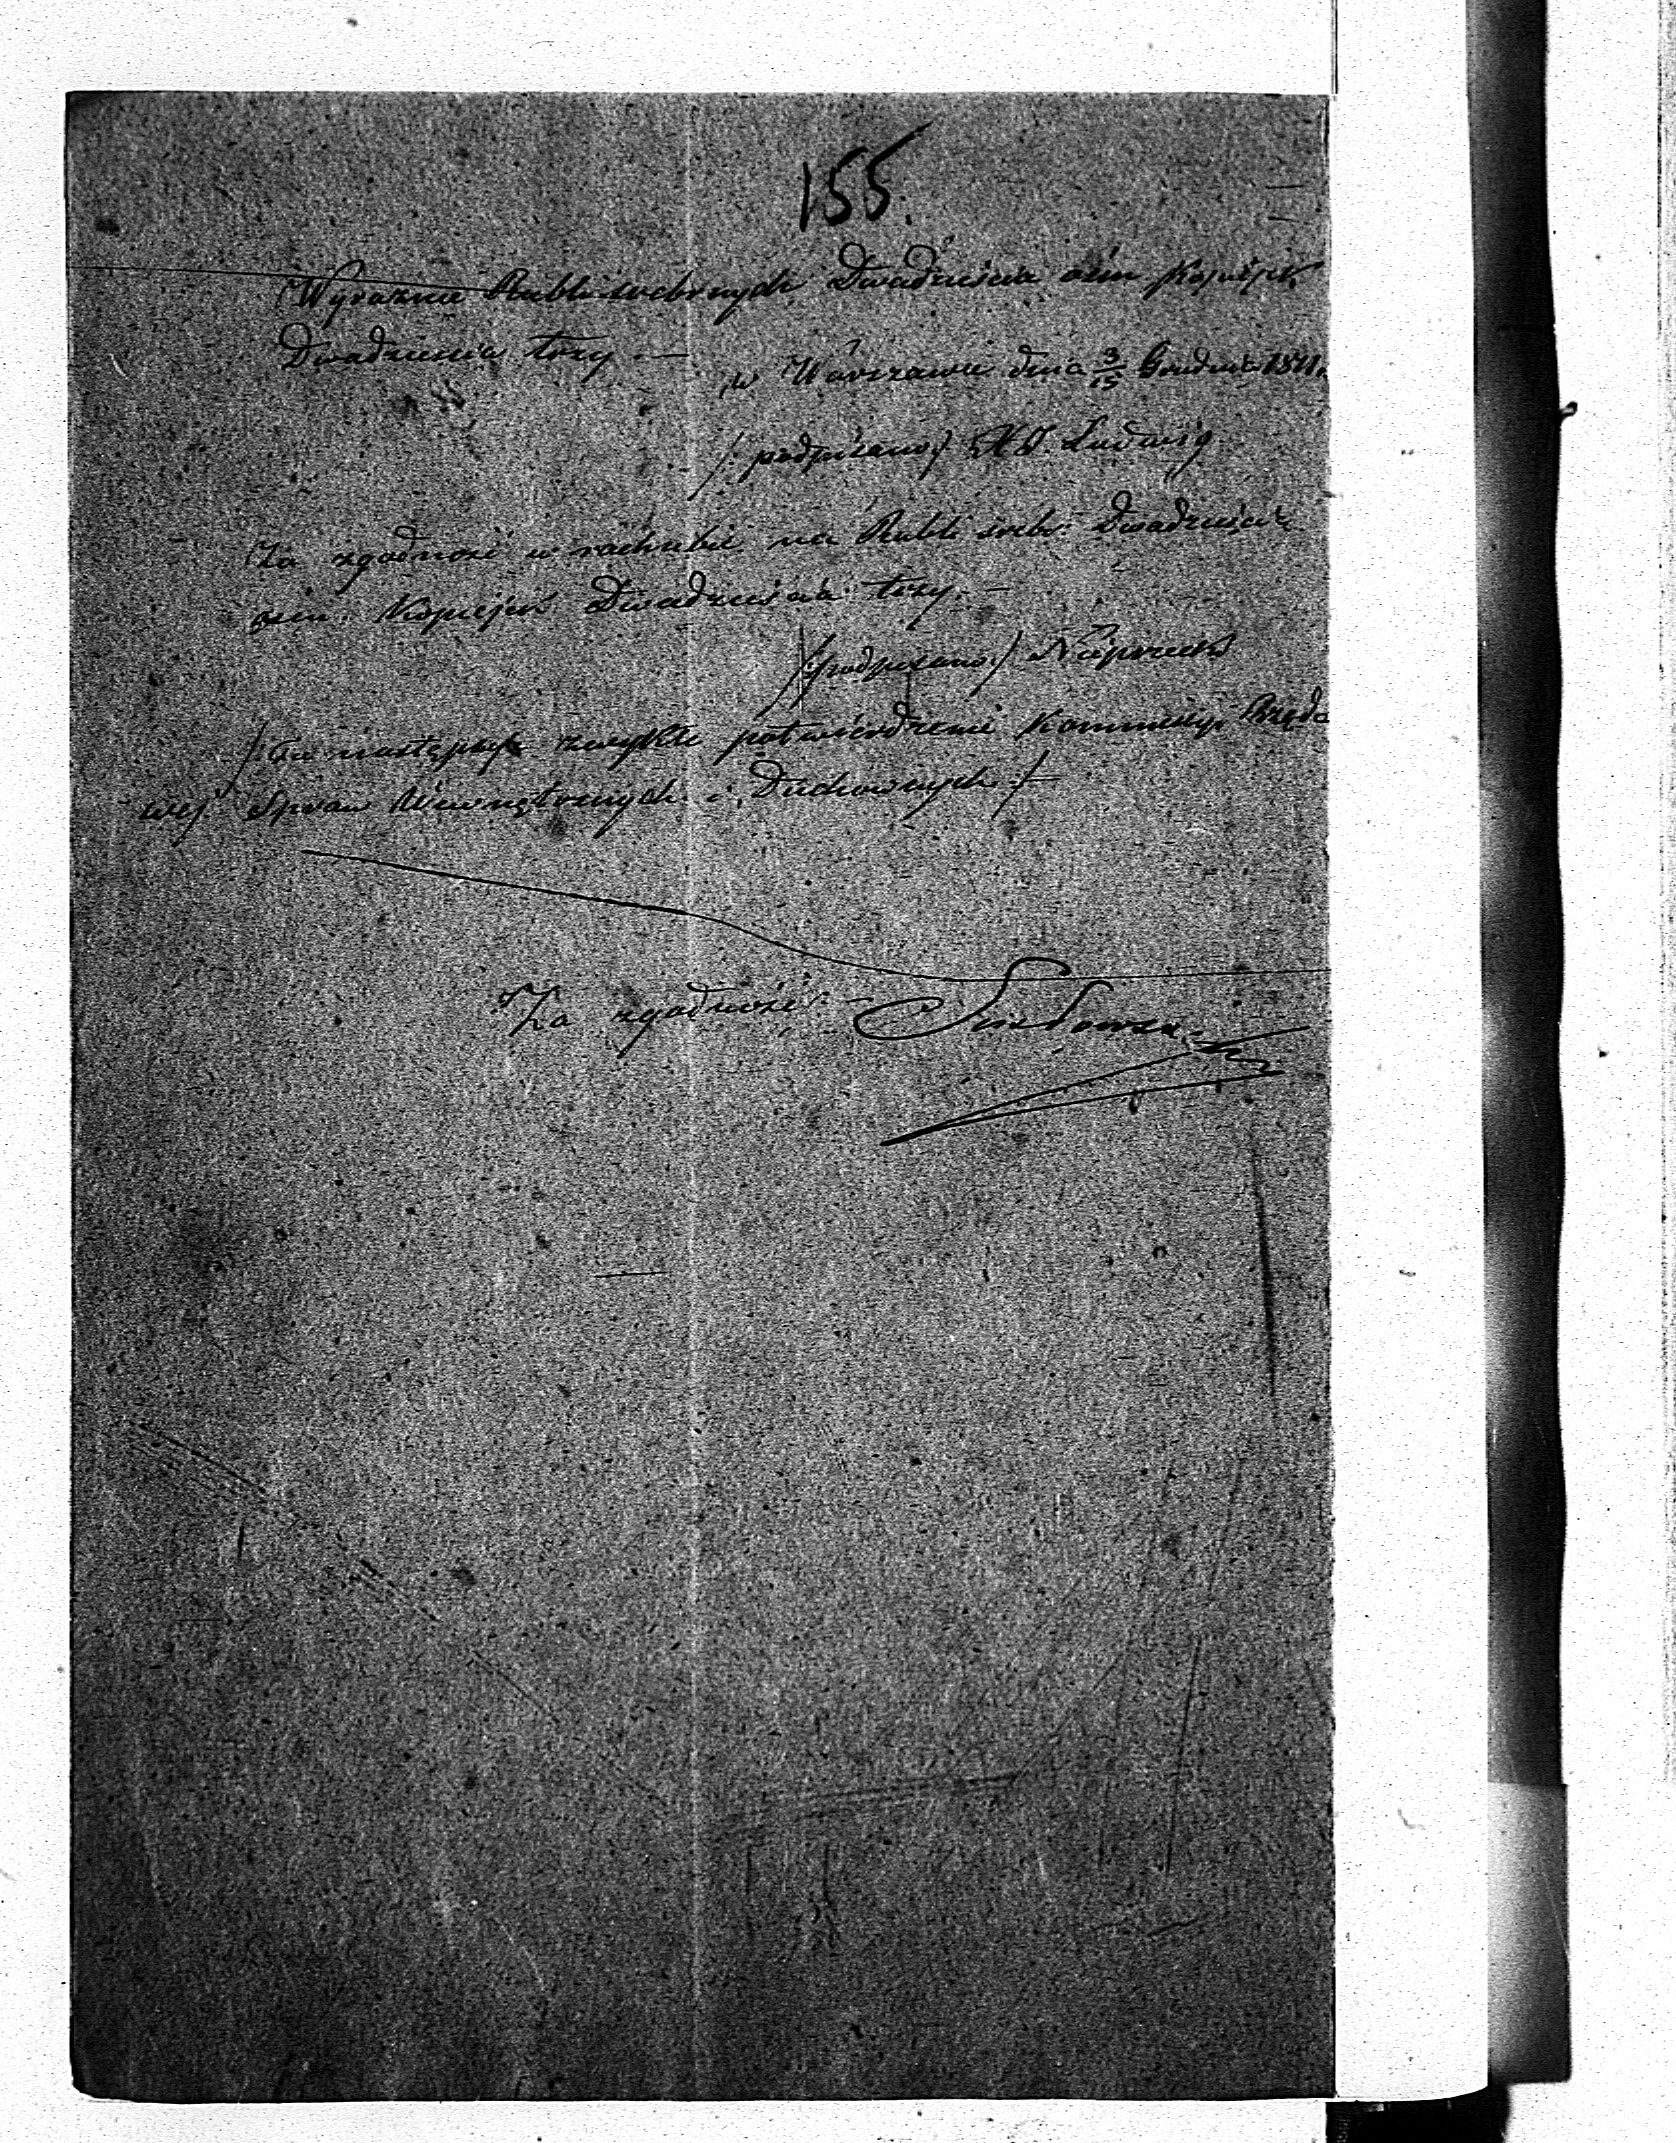 155.
Wyraźnie Rubli srebrnych Dwadzieścia ośm Kopiejek
Dwadzieścia trzy. —
w Warszawie dnia 3/15 Grudnia 1841.
/: podpisano:/ Ludwig
Za zgodność w rachubie na Rubli srebr: Dwadzieścia
ośm Kopiejek Dwadzieścia trzy. —
/:podpisano:/
/:Tu następuje zwykłe potwierdzenie Kommissyi Rządo
wej Spraw Wewnętrznych i Duchownych:/
Za zgodność